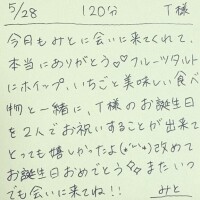 5/28 120分 T様
今日もみとに会いに来てくれて、
本当にありがとう♡♡ フルーツタルト
にホイップ、いちごと美味しい食べ
物と一緒に、T様のお誕生日
を2人でお祝いすることが出来て
とっても嬉しかったよ(*ˊᵕˋ*)改めて
お誕生日おめでとう♡♡ またいつ
でも会いに来てね!!
みと